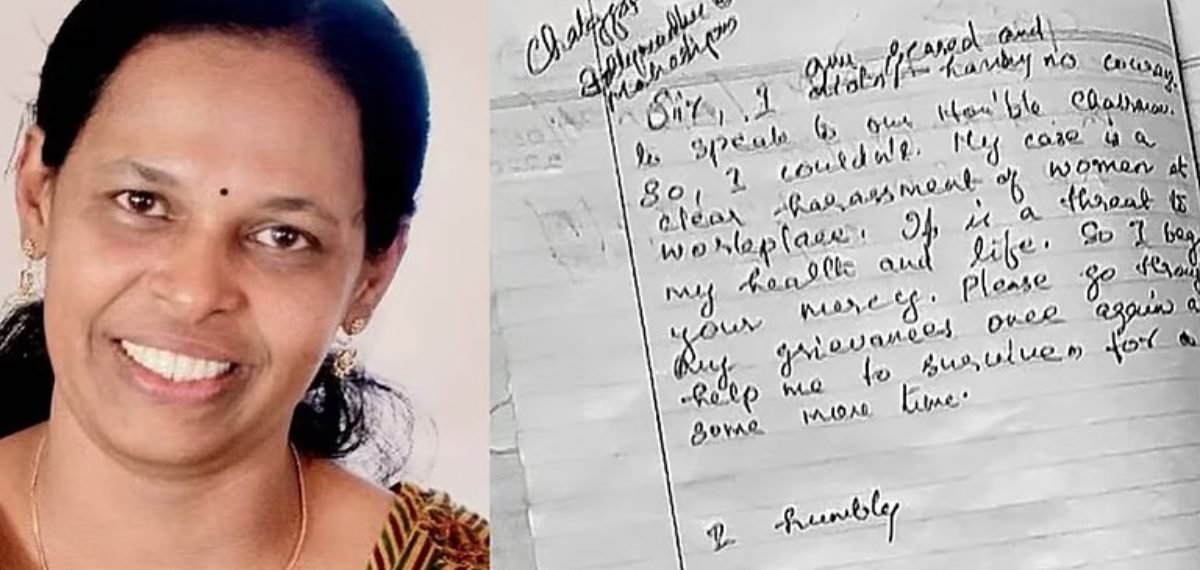 Sir, I am scared and
having no courag
to speak to our Hon'ble Chairman.
So, I couldn't. My case is a
clear harassment of women at
workplace. It, is a threat to
my health and life. So I beg
your mercy. Please go throug
my grievances once again a
help me to survive for
some more time.
I humbly